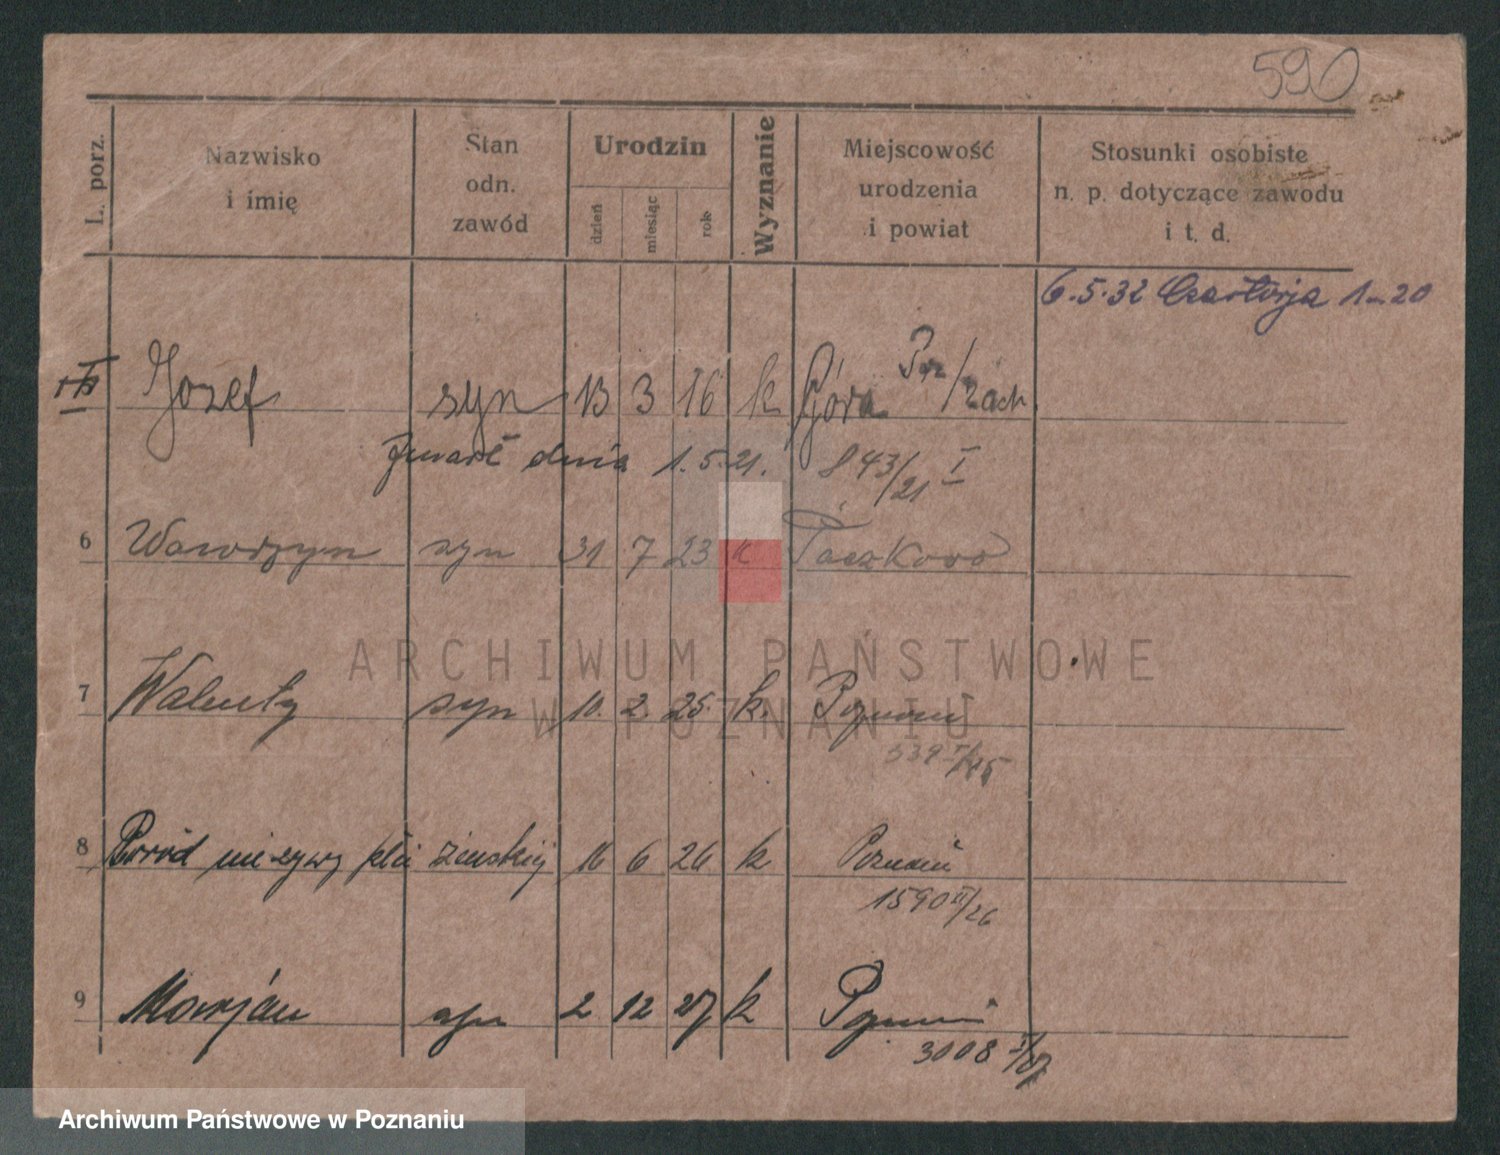 590
L. porz.
Nazwisko i imię
Stan odn. zawód
Urodzin
dzień miesiąc rok
Wyznanie
Miejscowość urodzenia i powiat
Stosunki osobiste n. p. dotyczące zawodu i t. d.
6.5.32 Czartorja 1 20
Józef syn 13 3 16 k Góra /zach
dnia 1.5.21. 843/21 I
6 Wawrzyn syn 31 7 23 k Taczkowo
7 Walenty syn 10. 2. 25 k. Poznań
8 Poród nieżywy płci żeńskiej 16 6 26 k Poznań
1590 II/26
9 Marjan syn 2 12 27 k Poznań
3008 I/27
ARCHIWUM PAŃSTWOWE
W POZNANIU
Archiwum Państwowe w Poznaniu